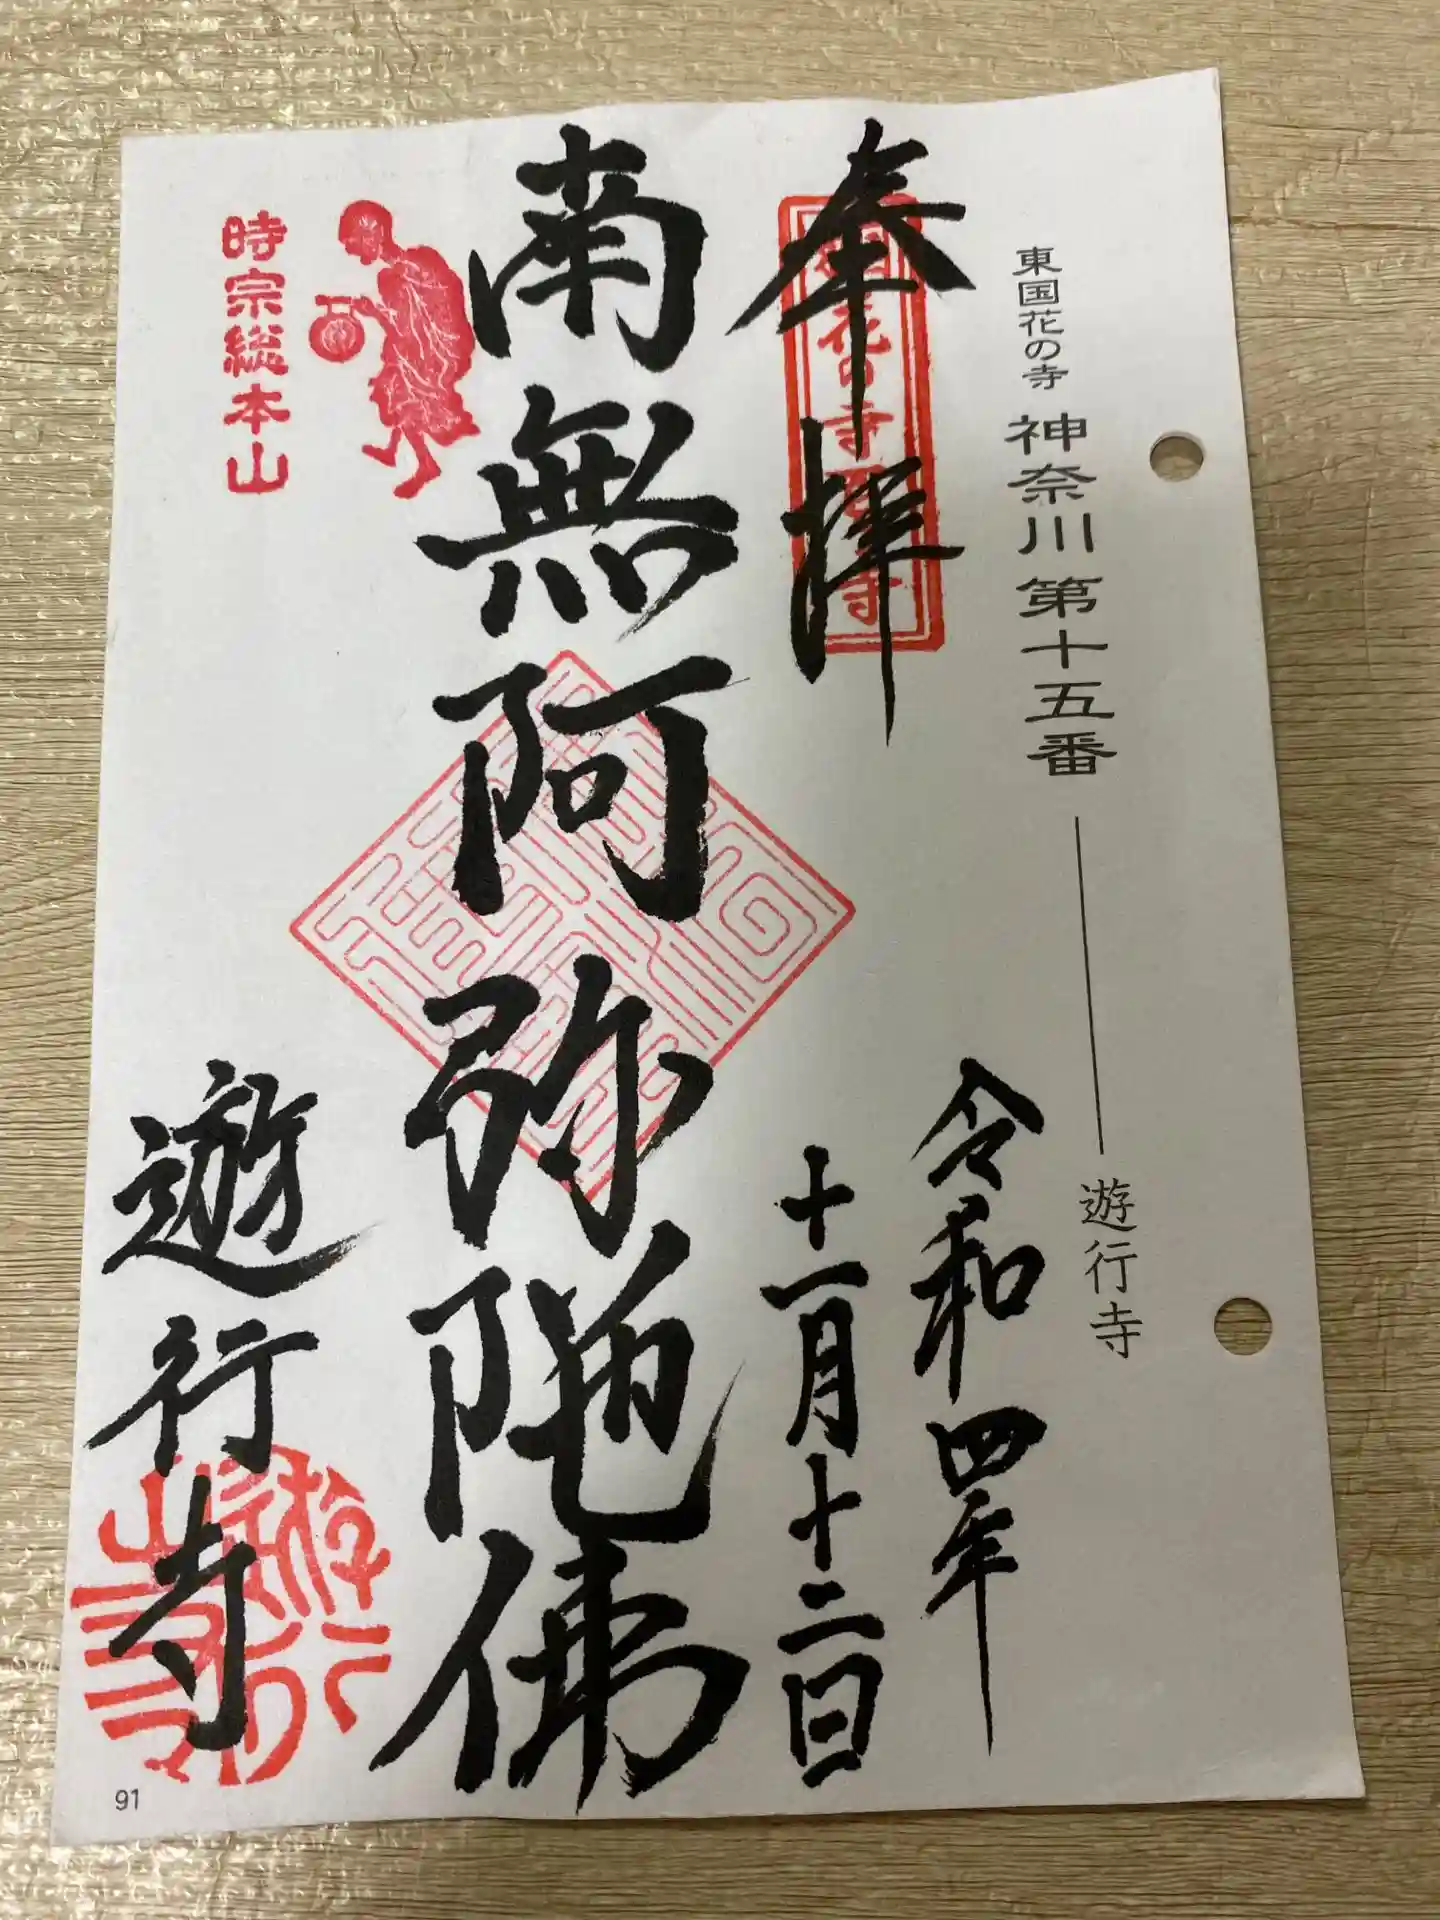 東国花の寺 神奈川第十五番 遊行寺
奉拝
令和四年
十一月十二日
南無阿弥陀佛
時宗総本山
遊行寺
91